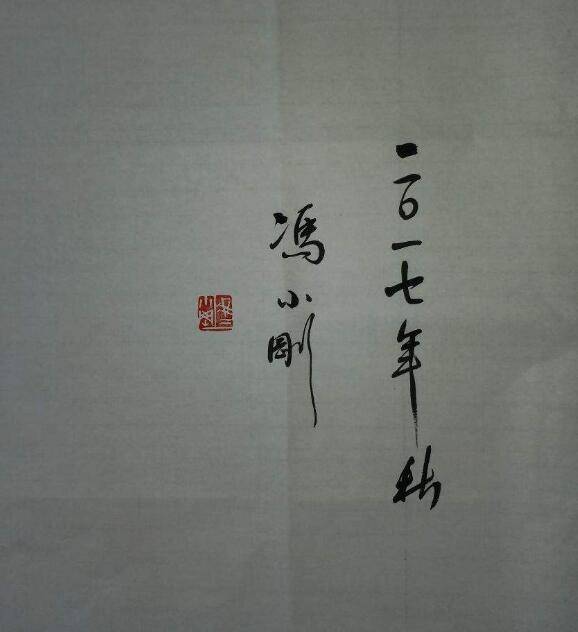 二〇一七年秋
馮小剛